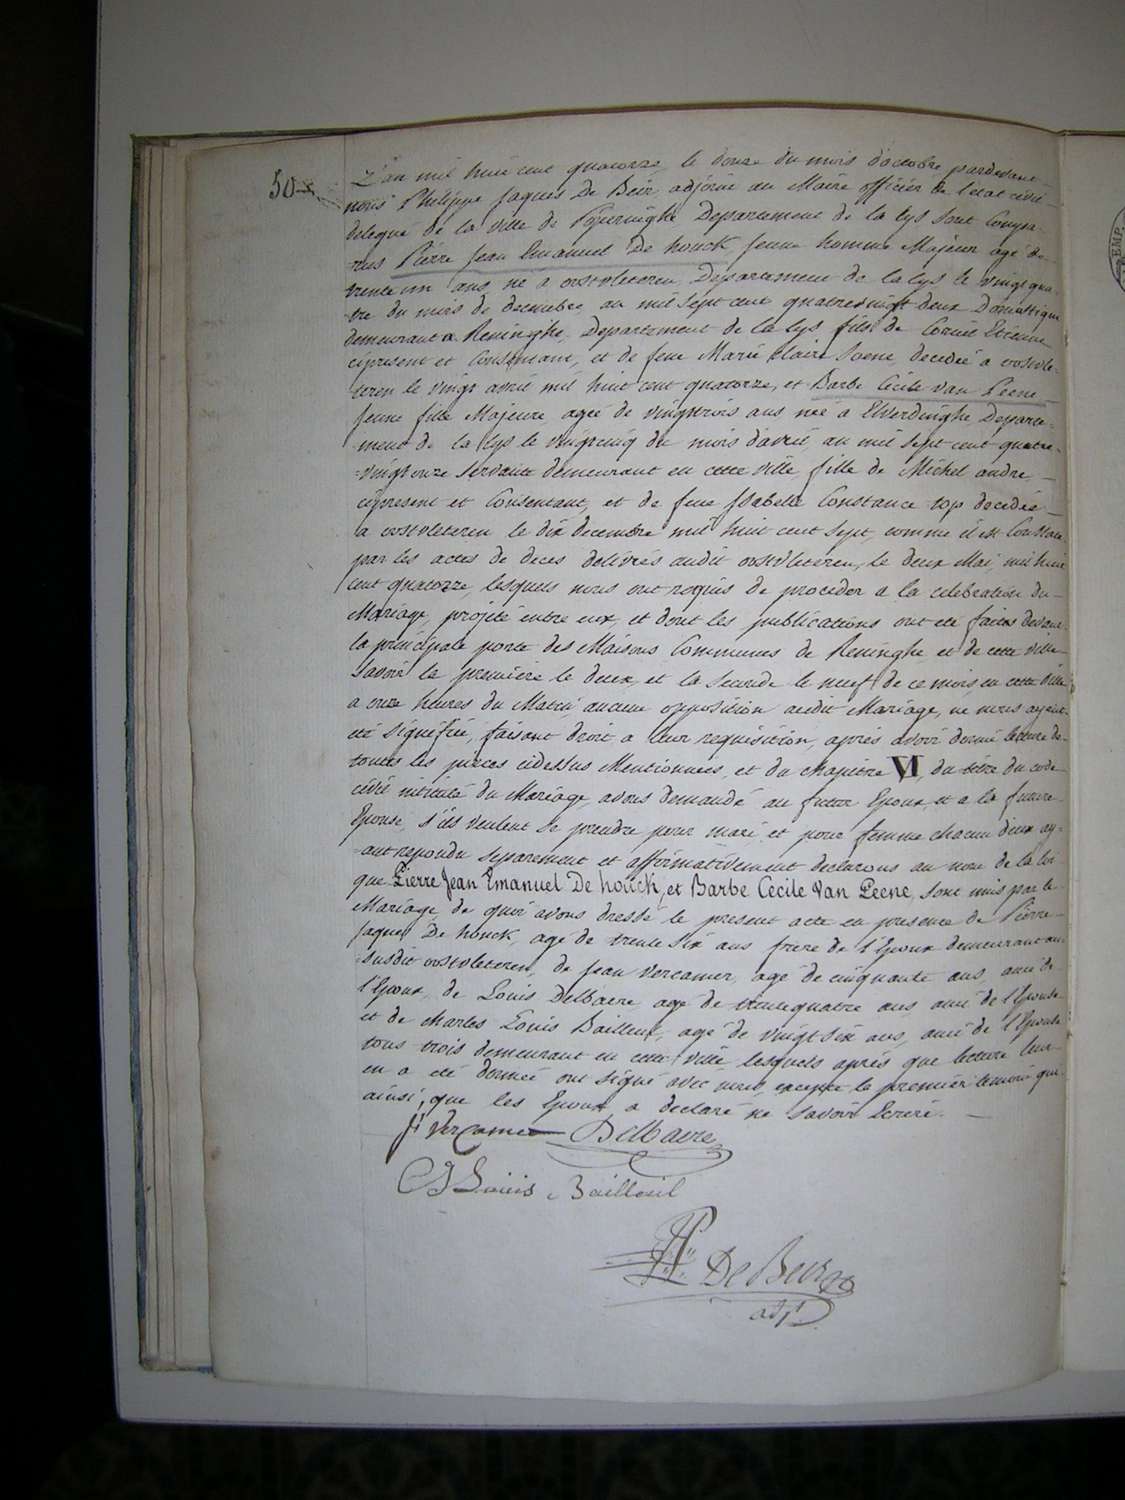 50
L'an mil huit cent quatorze, le douze du mois d'octobre pardevant
nous Philippe Jaques De Beir adjoint au Maire officier de l'etat civil
delegué de la ville de Poperinghe Departement de la Lys sont Compa-
rus Pierre Jean Emanuel De houck jeune homme Majeur agé de
trente un ans né a oostvleteren, Departement de la Lys le vingt qua-
tre du mois de decembre an mil sept cent quatrevingt deux Domestique
demeurant a Reninghe, Departement de la Lys fils de Corneil Etienne
cipresent et Consentant, et de feue Marie Claire Soene decedée a oostvle-
teren le vingt avril mil huit cent quatorze, et Barbe Cecile van Peene
jeune fille Majeure, agée de vingttrois ans née à Elverdinghe Departe-
ment de la Lys le vingtcinq du mois d'avril, an mil sept cent quatre-
-vingt onze Servante demeurant en cette ville, fille de Michel andre,
cipresent et Consentant, et de feue Isabelle Constance top decedée
a oostvleteren le dix decembre mil huit cent sept, comme il est Constaté
par les actes de deces delivrés audit oostvleteren, le deux Mai, mil huit
cent quatorze, lesquels nous ont requis de proceder a la celebration du
Mariage, projeté entre eux, et dont les publications ont eté faites devant
la principale porte des Maisons Communes de Reninghe et de cette ville
Savoir la premiere le deux, et la Seconde le neuf de ce mois, en cette ville
a onze heures du Matin, aucune opposition audit Mariage, ne nous ayant
eté Signifiée, faisant droit a leur requisition, après avoir donné lecture de
toutes les pieces cidessus Mentionnées, et du chapitre VI, du titre du code
civil intitulé du Mariage avons demandé au futur Epoux, et a la future
Epouse, s'ils veulent se prendre pour mari et pour femme chacun d'eux ay-
-ant repondu separement et affirmativement declarons au nom de la loi
que Pierre Jean Emanuel De houck, et Barbe Cecile Van Peene, sont unis par le
Mariage, de quoi avons dressé le present acte en presence de Pierre
Jaques De houck, agé de trente six ans frere de l'Epoux demeurant au
susdit oostvleteren, de Jean Vercamer, agé de cinquante ans, ami de
l'Epoux, de Louis Delbaere, agé de trentequatre ans ami de l'Epouse
et de Charles Louis Bailleul, agé de vingt six ans, ami de l'Epouse
tous trois demeurant en cette ville, lesquels après que lecture leur
en a eté donnée ont signé avec nous, excepté le premier temoin qui
ainsi, que les Epoux a declaré ne savoir Ecrire.
Vercamer Delbaere
Louis Bailleul
De Beir
adjt